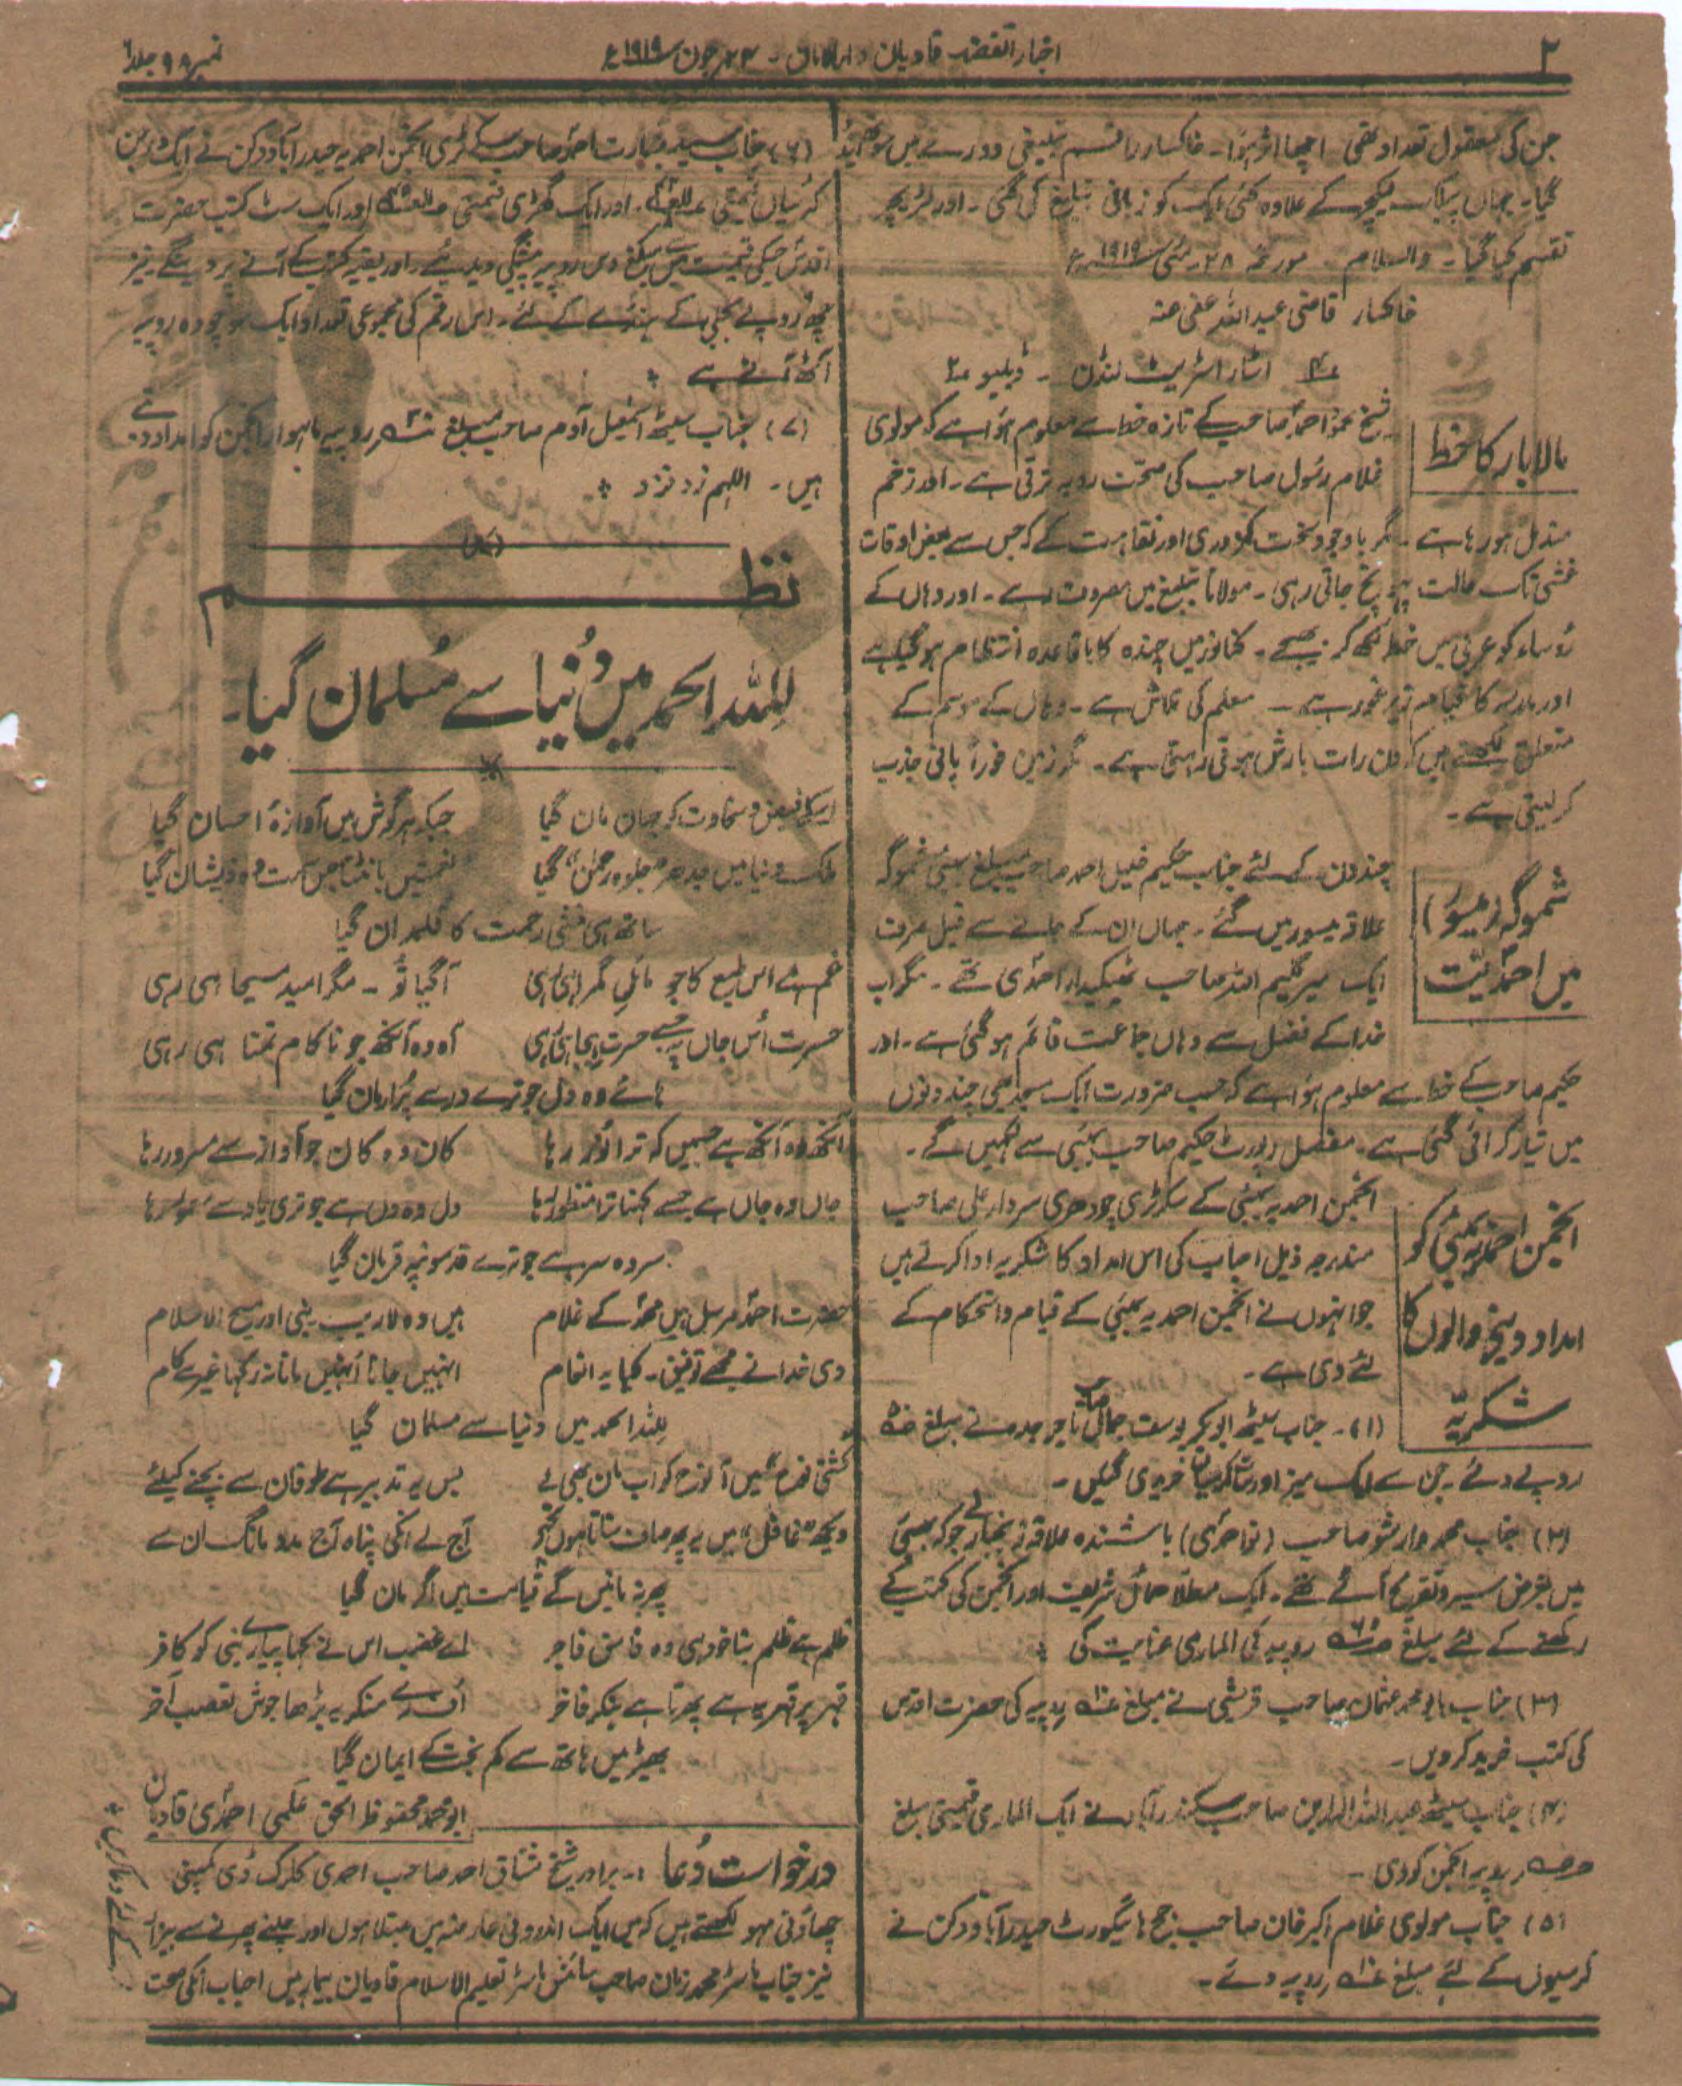 ۲
اخبار الفضل قادیان دارالامان - ۲۴ جون ۱۹۱۹ء
نمبر ۹۸ جلد ۶
جن کی معقول تعداد تھی اچھا اثر ہوا - خاکسار راقم تبلیغی دورے میں
گیا - جہاں پبلک لیکچر کے علاوہ کئی ایک کو زبانی تبلیغ کی گئی - اور لٹریچر
تقسیم کیا گیا - والسلام مورخہ ۲۸ - مئی ۱۹۱۹ء
خاکسار قاضی عبد اللہ عفی عنہ
اسٹار اسٹریٹ لنڈن - ڈبلیو ۲
مالابار کا خط
شیخ محمود احمد صاحب کے تازہ خط سے معلوم ہوا ہے کہ مولوی
غلام رسول صاحب کی صحت رو بہ ترقی ہے - اور زخم
مندمل ہو رہا ہے - مگر باوجود سخت کمزوری اور نقاہت کے کہ جس سے بعض اوقات
غشی تک حالت پہونچ جاتی رہی - مولانا تبلیغ میں مصروف رہے - اور وہاں کے
رؤساء کو عربی میں خط لکھ کر بھیجے - کنانور میں چندہ کا باقاعدہ انتظام ہو گیا ہے
اور مدرسہ کا قیام زیر غور ہے - معلم کی تلاش ہے - وہاں کے موسم کے
متعلق لکھتے ہیں کہ دن رات بارش ہوتی رہتی ہے - مگر زمین فوراً پانی جذب
کر لیتی ہے -
شموگہ (میسور)
میں احمدیت
چند دن کے لئے جناب حکیم خلیل احمد صاحب مبلغ بمبئی شموگہ
علاقہ میسور میں گئے - جہاں ان کے جانے سے قبل صرف
ایک میر کلیم اللہ صاحب ٹھیکیدار احمدی تھے - مگر اب
خدا کے فضل سے وہاں جماعت قائم ہو گئی ہے - اور
حکیم صاحب کے خط سے معلوم ہوا ہے کہ حسب ضرورت ایک مسجد بھی چند دنوں
میں تیار کرائی گئی ہے - مفصل رپورٹ حکیم صاحب بمبئی سے لکھیں گے -
انجمن احمدیہ بمبئی کو
امداد دینے والوں کا
شکریہ
انجمن احمدیہ بمبئی کے سکرٹری چودھری سردار علی صاحب
مندرجہ ذیل احباب کی اس امداد کا شکریہ ادا کرتے ہیں
جو انہوں نے انجمن احمدیہ بمبئی کے قیام و استحکام کے
لئے دی ہے -
(۱) - جناب سیٹھ ابوبکر یوسف جمال صاحب تاجر جدہ نے مبلغ
روپے دئے - جن سے ایک میز اور کرسیاں خریدی گئیں -
(۲) جناب محمد صاحب (نو احمدی) باشندہ علاقہ زنجبار نے جو کہ بمبئی
میں بغرض سیر و تفریح آئے تھے - ایک مطلا حمائل شریف اور انجمن کی کتب کے
رکھنے کے لئے مبلغ روپیہ کی الماری عنایت کی
(۳) جناب بابو محمد عثمان صاحب قریشی نے مبلغ روپیہ کی حضرت اقدس
کی کتب خرید کر دیں -
(۴) جناب سیٹھ عبد اللہ الہ دین صاحب سکندرآباد نے ایک الماری قیمتی مبلغ
روپیہ انجمن کو دی -
(۵) جناب مولوی غلام اکبر خان صاحب جج ہائیکورٹ حیدرآباد دکن نے
کرسیوں کے لئے مبلغ روپیہ دئے -
(۶) جناب سید بشارت احمد صاحب سکرٹری انجمن احمدیہ حیدرآباد دکن نے ایک درجن
کرسیاں قیمتی اور ایک گھڑی قیمتی اور ایک سٹ کتب حضرت
اقدس جسکی قیمت میں مبلغ دس روپیہ پیشگی دیدئے اور بقیہ کتب کے آنے پر دینگے نیز
چھ روپے بجلی کے ہنڈے کے لئے - اس رقم کی مجموعی تعداد ایک سو چودہ روپیہ
آٹھ آنے ہے
(۷) جناب سیٹھ اسمٰعیل آدم صاحب مبلغ روپیہ ماہوار انجمن کو امداد دیتے
ہیں - اللہم زد فزد
نظم
للہ الحمد میں دنیا سے مسلمان گیا
اسکے فیض و سخاوت کو جہان مان گیا جبکہ ہر گوش میں آوازۂ احسان گیا
ملک دنیا میں جدھر جلوہ رحمٰن گیا نعمتیں بانٹتا جس سمت وہ ذیشان گیا
ساتھ ہی منشی رحمت کا قلمدان گیا
غم ہے اس طبع کا جو مائل گمراہی رہی آ گیا تُو - مگر امید مسیحا ہی رہی
حسرت اُس جاں پہ جسے حسرت بیجا ہی رہی آہ وہ آنکھ جو ناکام تمنا ہی رہی
ہائے وہ دل جو ترے در سے پُر ارمان گیا
آنکھ وہ آنکھ ہے جسمیں کہ ترا نور رہا کان وہ کان جو آواز سے مسرور رہا
جاں وہ جاں ہے جسے کہنا ترا منظور رہا دل وہ دل ہے جو تری یاد سے معمور رہا
سر وہ سر ہے جو ترے قدموں پہ قربان گیا
حضرت احمد مرسل ہیں محمد کے غلام ہیں وہ لاریب نبی اور مسیح الاسلام
دی خدا نے مجھے توفیق - کیا یہ انعام انہیں جانا انہیں مانا نہ رکھا غیر سے کام
للہ الحمد میں دنیا سے مسلمان گیا
کشتی نوح میں آ نوح کو اب مان بھی لے بس یہ تدبیر ہے طوفان سے بچنے کیلئے
دیکھ "غافل" میں یہ پھر صاف سناتا ہوں تجھے آج لے انکی پناہ آج مدد مانگ ان سے
پھر نہ مانیں گے قیامت میں اگر مان گیا
ظلم ہے ظلم بنا خود ہی وہ فاسق فاجر اے غضب اس نے کہا پیارے نبی کو کافر
قہر پر قہر یہ ہے پھرتا ہے بنکر فاخر اُف رے منکر یہ بڑھا جوش تعصب آخر
بھیڑ میں ہاتھ سے کم بخت کے ایمان گیا
ابو محمد محفوظ الحق علمی احمدی قادیان
درخواست دعا :- برادر شیخ مشتاق احمد صاحب احمدی کلرک ڈی کمپنی
چھاؤنی مہو لکھتے ہیں کہ میں ایک اندرونی عارضہ میں مبتلا ہوں اور چلنے پھرنے سے بیزار
نیز جناب ماسٹر محمد زمان صاحب سائنس ماسٹر تعلیم الاسلام قادیان بیمار ہیں احباب انکی صحت
کے لئے دعا کریں